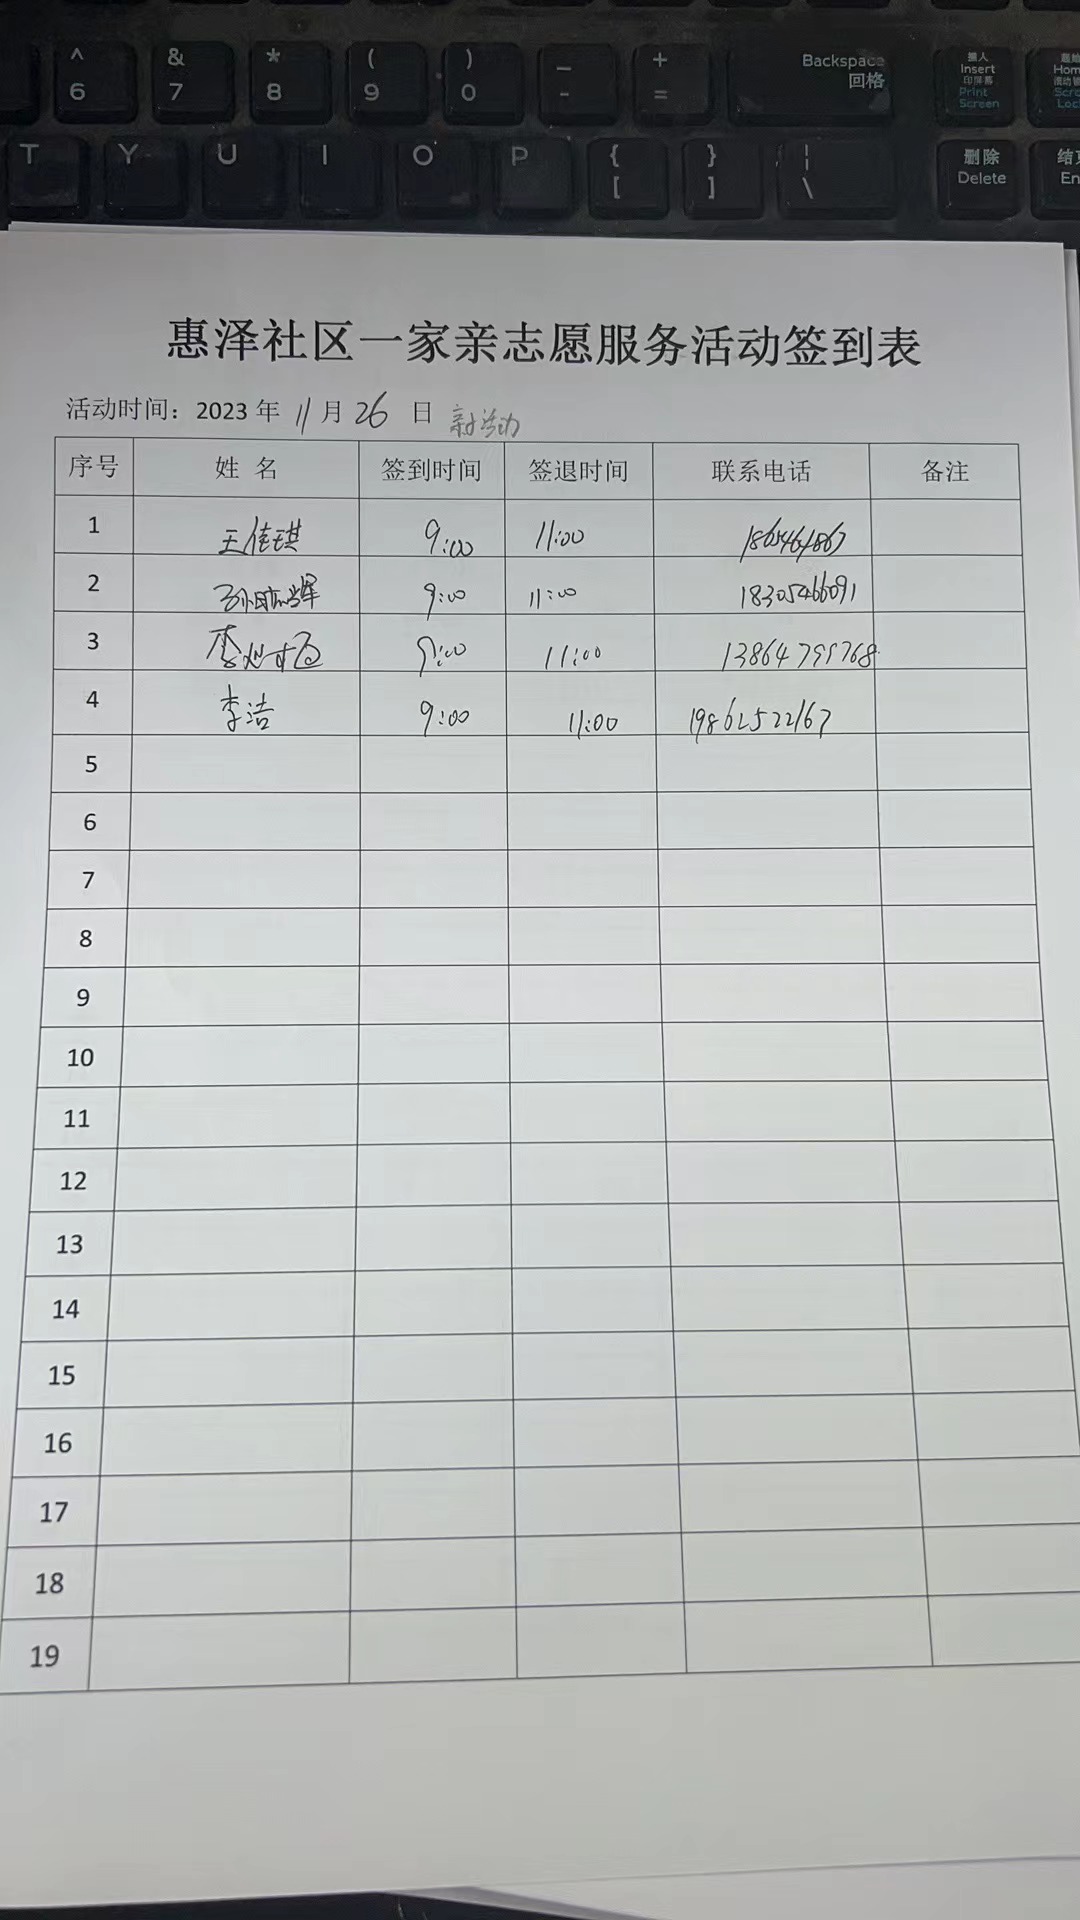 ^ & * ( ) — + Backspace
6 7 8 9 0 - = 回格
插入 Insert 印屏幕 Print Screen
Hom
T Y U I O P { } ¦
[ ] \
删除 Delete
En
惠泽社区一家亲志愿服务活动签到表
活动时间：2023 年 11 月 26 日
序号 姓 名 签到时间 签退时间 联系电话 备注
1 王佳琪 9:00 11:00
2 9:00 11:00 18305466091
3 9:00 11:00 13864799768
4 李洁 9:00 11:00 19862522167
5
6
7
8
9
10
11
12
13
14
15
16
17
18
19